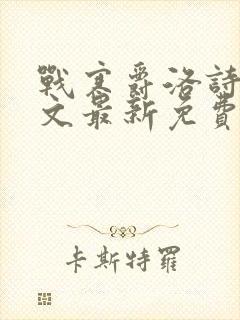 戰寒爵洛詩
文最新免費
卡斯特羅